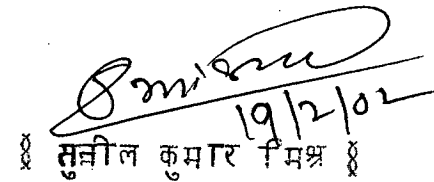 19/2/02
सुनील कुमार मिश्र